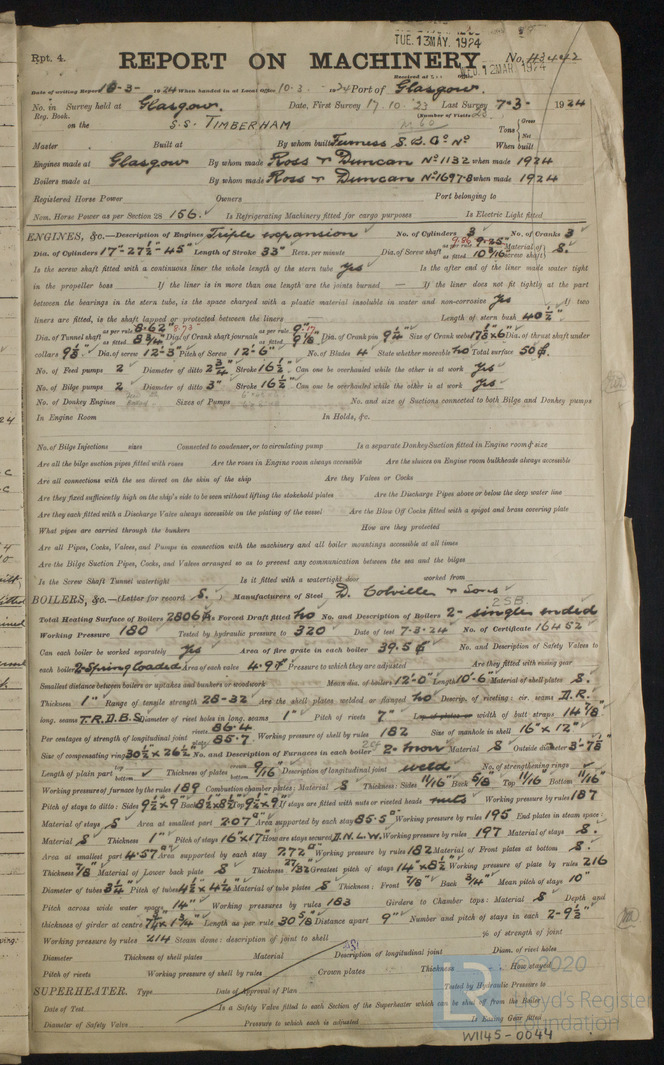 TUE. 13 MAY. 1924
Rpt. 4.
REPORT ON MACHINERY.
No. 43442
WED. 12 MAR. 1924
Date of writing Report 10-3- 1924 When handed in at Local Office 10.3. 1924 Port of Glasgow.
No. in Survey held at Glasgow. Date, First Survey 17.10.23 Last Survey 7-3- 1924
Reg. Book. (Number of Visits
on the S.S. TIMBERHAM Tons Gross Net
Master Built at By whom built Furness S.B. Co No When built
Engines made at Glasgow By whom made Ross & Duncan No 1132 when made 1924
Boilers made at By whom made Ross & Duncan No 1697-8 when made 1924
Registered Horse Power Owners Port belonging to
Nom. Horse Power as per Section 28 156. Is Refrigerating Machinery fitted for cargo purposes Is Electric Light fitted
ENGINES, &c.—Description of Engines Triple expansion No. of Cylinders 3 No. of Cranks 3
Dia. of Cylinders 17"-27½"-45" Length of Stroke 33" Revs. per minute Dia. of Screw shaft as per rule 9.25" as fitted 10 3/16" Material of screw shaft S.
Is the screw shaft fitted with a continuous liner the whole length of the stern tube Yes Is the after end of the liner made water tight
in the propeller boss If the liner is in more than one length are the joints burned — If the liner does not fit tightly at the part
between the bearings in the stern tube, is the space charged with a plastic material insoluble in water and non-corrosive Yes If two
liners are fitted, is the shaft lapped or protected between the liners Length of stern bush 40½"
Dia. of Tunnel shaft as per rule 8.62" 8.73" as fitted 8¾" Dia. of Crank shaft journals as per rule as fitted 9⅛" Dia. of Crank pin 9¼" Size of Crank webs 17⅝"x6" Dia. of thrust shaft under
collars 9⅛" Dia. of screw 12'-3" Pitch of Screw 12'-6" No. of Blades 4 State whether moveable No Total surface 50
No. of Feed pumps 2 Diameter of ditto 2¾" Stroke 16½" Can one be overhauled while the other is at work Yes
No. of Bilge pumps 2 Diameter of ditto 3" Stroke 16½" Can one be overhauled while the other is at work Yes
No. of Donkey Engines Sizes of Pumps No. and size of Suctions connected to both Bilge and Donkey pumps
In Engine Room In Holds, &c.
No. of Bilge Injections sizes Connected to condenser, or to circulating pump Is a separate Donkey Suction fitted in Engine room & size
Are all the bilge suction pipes fitted with roses Are the roses in Engine room always accessible Are the sluices on Engine room bulkheads always accessible
Are all connections with the sea direct on the skin of the ship Are they Valves or Cocks
Are they fixed sufficiently high on the ship's side to be seen without lifting the stokehold plates Are the Discharge Pipes above or below the deep water line
Are they each fitted with a Discharge Valve always accessible on the plating of the vessel Are the Blow Off Cocks fitted with a spigot and brass covering plate
What pipes are carried through the bunkers How are they protected
Are all Pipes, Cocks, Valves, and Pumps in connection with the machinery and all boiler mountings accessible at all times
Are the Bilge Suction Pipes, Cocks, and Valves arranged so as to prevent any communication between the sea and the bilges
Is the Screw Shaft Tunnel watertight Is it fitted with a watertight door worked from
BOILERS, &c.—(Letter for record S.) Manufacturers of Steel D. Colville & Sons
2SB.
Total Heating Surface of Boilers 2806 Is Forced Draft fitted No No. and Description of Boilers 2- single ended
Working Pressure 180 Tested by hydraulic pressure to 320 Date of test 7-3-24 No. of Certificate 16452
Can each boiler be worked separately Yes Area of fire grate in each boiler 39.5 No. and Description of Safety Valves to
each boiler 2-Spring loaded Area of each valve 4.9 Pressure to which they are adjusted Are they fitted with easing gear
Smallest distance between boilers or uptakes and bunkers or woodwork Mean dia. of boilers 12'-0" Length 10'-6" Material of shell plates S.
Thickness 1" Range of tensile strength 28-32 Are the shell plates welded or flanged No Descrip. of riveting: cir. seams D.R.
long. seams T.R.D.B.S. Diameter of rivet holes in long. seams 1" Pitch of rivets 7" Lap of plates or width of butt straps 14⅞"
Per centages of strength of longitudinal joint rivets 86.4 plate 85.7 Working pressure of shell by rules 182 Size of manhole in shell 16" x 12"
Size of compensating ring 30½x26½ No. and Description of Furnaces in each boiler 2- Material S Outside diameter 3'-7⅝"
Length of plain part top bottom Thickness of plates crown bottom 9/16" Description of longitudinal joint weld No. of strengthening rings
Working pressure of furnace by the rules 189 Combustion chamber plates: Material S Thickness: Sides 11/16" Back 5/8" Top 11/16" Bottom 11/16"
Pitch of stays to ditto: Sides 9½x9" Back 8½x8½ Top 9½x9" If stays are fitted with nuts or riveted heads nuts Working pressure by rules 187
Material of stays S Area at smallest part 2.07 Area supported by each stay 85.5 Working pressure by rules 195 End plates in steam space:
Material S Thickness 1" Pitch of stays 16"x17" How are stays secured D.N.L.W. Working pressure by rules 197 Material of stays S.
Area at smallest part 4.57 Area supported by each stay 272 Working pressure by rules 182 Material of Front plates at bottom S.
Thickness 7/8 Material of Lower back plate S Thickness 27/32 Greatest pitch of stays 14"x8½ Working pressure of plate by rules 216
Diameter of tubes 3¼ Pitch of tubes 4½x4½ Material of tube plates S Thickness: Front 7/8" Back 3/4" Mean pitch of stays 10"
Pitch across wide water spaces 14" Working pressures by rules 183 Girders to Chamber tops: Material S Depth and
thickness of girder at centre 7½x1¾ Length as per rule 30⅝ Distance apart 9" Number and pitch of stays in each 2-9½"
Working pressure by rules 214 Steam dome: description of joint to shell % of strength of joint
Diameter Thickness of shell plates Material Description of longitudinal joint Diam. of rivet holes
Pitch of rivets Working pressure of shell by rules Crown plates Thickness How stayed
SUPERHEATER. Type Date of Approval of Plan Tested by Hydraulic Pressure to
Date of Test Is a Safety Valve fitted to each Section of the Superheater which can be shut off from the Boiler
Diameter of Safety Valve Pressure to which each is adjusted Is Easing Gear fitted
© 2020
Lloyd's Register
Foundation
W1145-0044